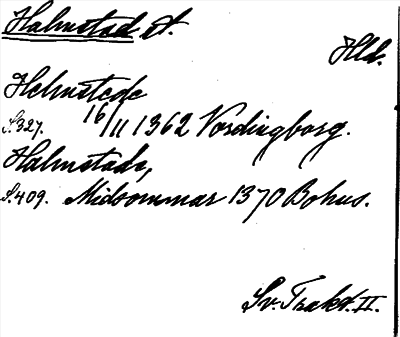 Halmstad st.
Hld.
Helmstede
S.327. 16/11 1362 Vordingborg.
Halmstade,
S.409. Midsommar 1370 Bohus.
Sv. Trakt. II.